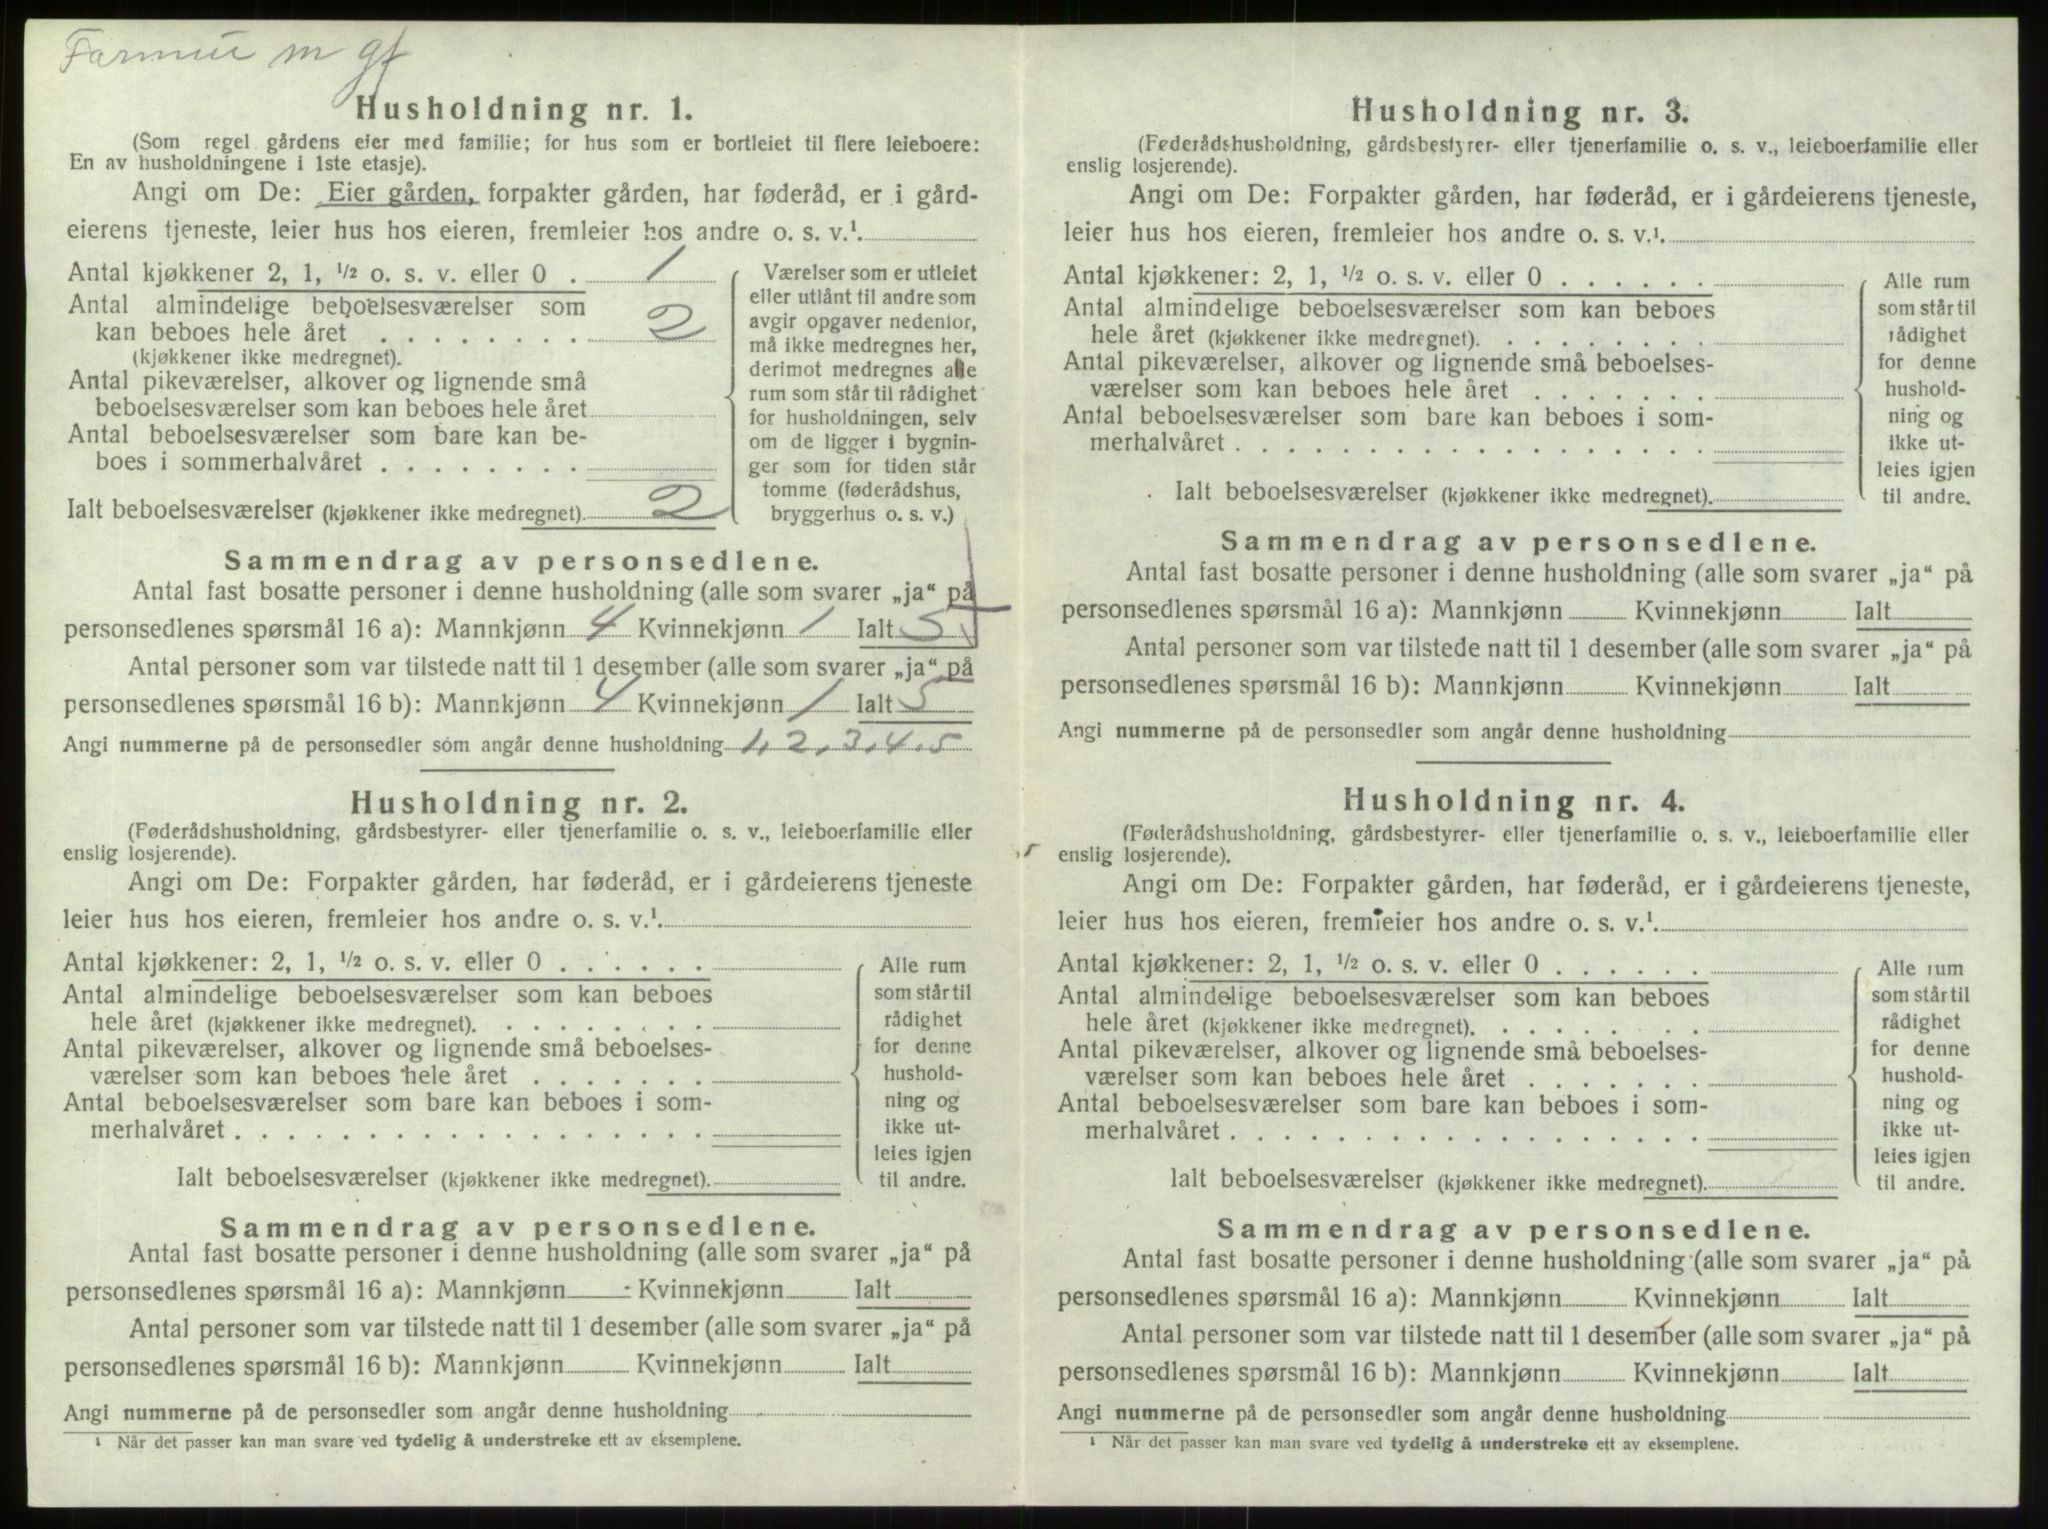 m gf
Husholdning nr. 1.
(Som regel gårdens eier med familie; for hus som er bortleiet til flere leieboere:
En av husholdningene i 1ste etasje).
Angi om De: Eier gården, forpakter gården, har føderåd, er i gård-
eierens tjeneste, leier hus hos eieren, fremleier hos andre o. s. v.¹.
Antal kjøkkener 2, 1, ½ o. s. v. eller 0 . 1
Antal almindelige beboelsesværelser som
kan beboes hele året . . . . . . . . 2
(kjøkkener ikke medregnet).
Antal pikeværelser, alkover og lignende små
beboelsesværelser som kan beboes hele året
Antal beboelsesværelser som bare kan be-
boes i sommerhalvåret . . . . . . . .
Ialt beboelsesværelser (kjøkkener ikke medregnet). 2
Værelser som er utleiet
eller utlånt til andre som
avgir opgaver nedenfor,
må ikke medregnes her,
derimot medregnes alle
rum som står til rådighet
for husholdningen, selv
om de ligger i bygnin-
ger som for tiden står
tomme (føderådshus,
bryggerhus o. s. v.)
Sammendrag av personsedlene.
Antal fast bosatte personer i denne husholdning (alle som svarer „ja“ på
personsedlenes spørsmål 16 a): Mannkjønn 4 Kvinnekjønn 1 Ialt 5
Antal personer som var tilstede natt til 1 desember (alle som svarer „ja“ på
personsedlenes spørsmål 16 b): Mannkjønn 4 Kvinnekjønn 1 Ialt 5
Angi nummerne på de personsedler som angår denne husholdning 1, 2, 3, 4, 5
Husholdning nr. 2.
(Føderådshusholdning, gårdsbestyrer- eller tjenerfamilie o. s. v., leieboerfamilie eller
enslig losjerende).
Angi om De: Forpakter gården, har føderåd, er i gårdeierens tjeneste
leier hus hos eieren, fremleier hos andre o. s. v.¹.
Antal kjøkkener: 2, 1, ½ o. s. v. eller 0 . . . . . .
Antal almindelige beboelsesværelser som kan beboes
hele året (kjøkkener ikke medregnet). . . . . . . . .
Antal pikeværelser, alkover og lignende små beboelses-
værelser som kan beboes hele året . . . . . . .
Antal beboelsesværelser som bare kan beboes i som-
merhalvåret . . . . . . . . . . . . . . . . . .
Ialt beboelsesværelser (kjøkkener ikke medregnet).
Alle rum
som står til
rådighet
for denne
hushold-
ning og
ikke ut-
leies igjen
til andre.
Sammendrag av personsedlene.
Antal fast bosatte personer i denne husholdning (alle som svarer „ja“ på
personsedlenes spørsmål 16 a): Mannkjønn Kvinnekjønn Ialt
Antal personer som var tilstede natt til 1 desember (alle som svarer „ja“ på
personsedlenes spørsmål 16 b): Mannkjønn Kvinnekjønn Ialt
Angi nummerne på de personsedler som angår denne husholdning
¹ Når det passer kan man svare ved tydelig å understreke ett av eksemplene.
Husholdning nr. 3.
(Føderådshusholdning, gårdsbestyrer- eller tjenerfamilie o. s. v., leieboerfamilie eller
enslig losjerende).
Angi om De: Forpakter gården, har føderåd, er i gårdeierens tjeneste,
leier hus hos eieren, fremleier hos andre o. s. v.¹.
Antal kjøkkener: 2, 1, ½ o. s. v. eller 0 . . . . . .
Antal almindelige beboelsesværelser som kan beboes
hele året (kjøkkener ikke medregnet). . . . . . . . .
Antal pikeværelser, alkover og lignende små beboelses-
værelser som kan beboes hele året . . . . . . .
Antal beboelsesværelser som bare kan beboes i som-
merhalvåret . . . . . . . . . . . . . . . . . .
Ialt beboelsesværelser (kjøkkener ikke medregnet).
Alle rum
som står til
rådighet
for denne
hushold-
ning og
ikke ut-
leies igjen
til andre.
Sammendrag av personsedlene.
Antal fast bosatte personer i denne husholdning (alle som svarer „ja“ på
personsedlenes spørsmål 16 a): Mannkjønn Kvinnekjønn Ialt
Antal personer som var tilstede natt til 1 desember (alle som svarer „ja“ på
personsedlenes spørsmål 16 b): Mannkjønn Kvinnekjønn Ialt
Angi nummerne på de personsedler som angår denne husholdning
Husholdning nr. 4.
(Føderådshusholdning, gårdsbestyrer- eller tjenerfamilie o. s. v., leieboerfamilie eller
enslig losjerende).
Angi om De: Forpakter gården, har føderåd, er i gårdeierens tjeneste,
leier hus hos eieren, fremleier hos andre o. s. v.¹.
Antal kjøkkener: 2, 1, ½ o. s. v. eller 0 . . . . . .
Antal almindelige beboelsesværelser som kan beboes
hele året (kjøkkener ikke medregnet). . . . . . . . .
Antal pikeværelser, alkover og lignende små beboelses-
værelser som kan beboes hele året . . . . . . .
Antal beboelsesværelser som bare kan beboes i som-
merhalvåret . . . . . . . . . . . . . . . . . .
Ialt beboelsesværelser (kjøkkener ikke medregnet).
Alle rum
som står til
rådighet
for denne
hushold-
ning og
ikke ut-
leies igjen
til andre.
Sammendrag av personsedlene.
Antal fast bosatte personer i denne husholdning (alle som svarer „ja“ på
personsedlenes spørsmål 16 a): Mannkjønn Kvinnekjønn Ialt
Antal personer som var tilstede natt til 1 desember (alle som svarer „ja“ på
personsedlenes spørsmål 16 b): Mannkjønn Kvinnekjønn Ialt
Angi nummerne på de personsedler som angår denne husholdning
¹ Når det passer kan man svare ved tydelig å understreke ett av eksemplene.